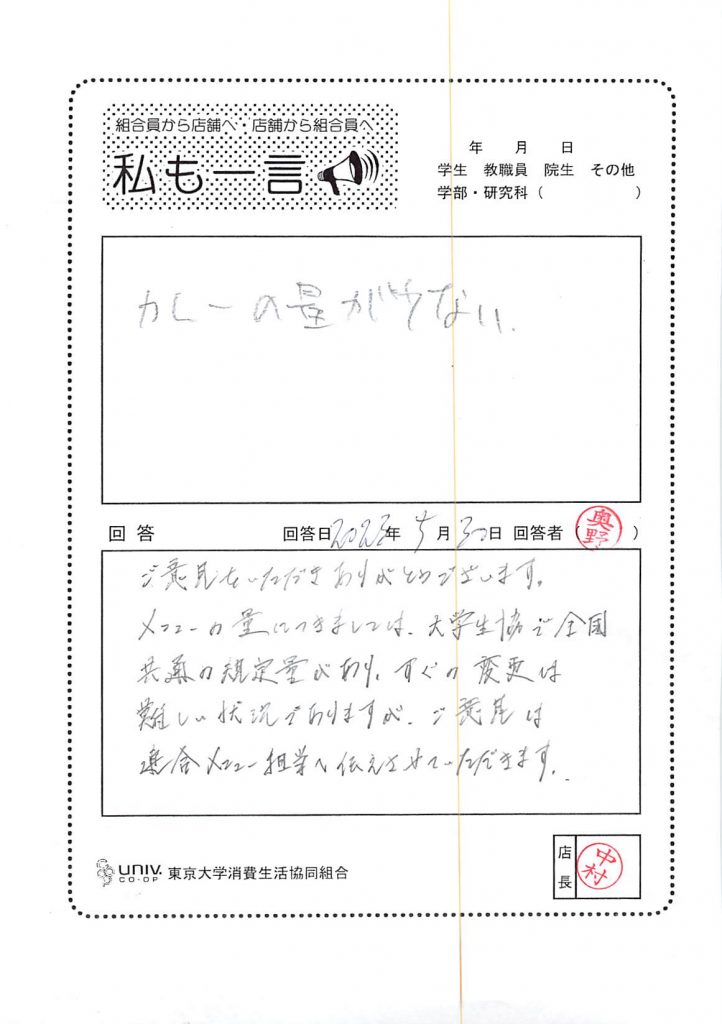 組合員から店舗へ・店舗から組合員へ
私も一言
年 月 日
学生 教職員 院生 その他
学部・研究科 ( )
カレーの量が少ない.
回答 回答日2023年5月30日 回答者 (奥野)
ご意見をいただきありがとうございます。
メニューの量につきましては、大学生協で全国
共通の規定量があり、すぐの変更は
難しい状況でありますが、ご意見は
連合メニュー担当へ伝えさせていただきます。
UNIV. CO-OP 東京大学消費生活協同組合
店長 中村